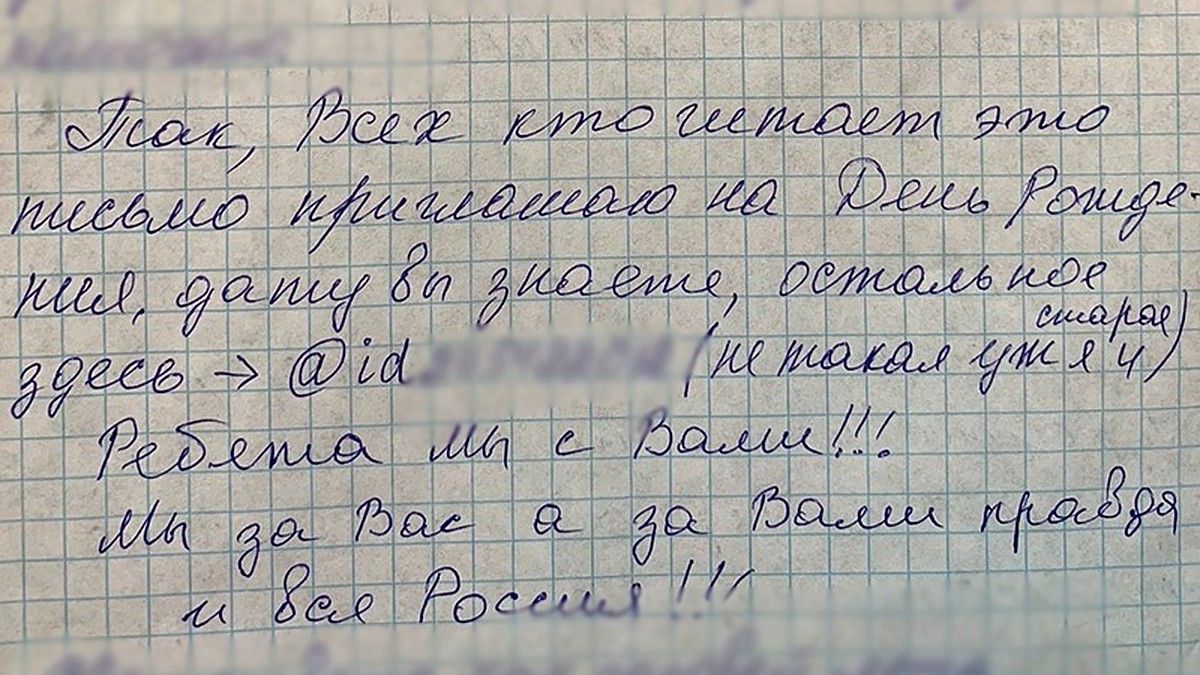 Так, Всех кто читает это
письмо приглашаю на День Рожде-
ния, дату вы знаете, остальное
здесь → @id (не такая уж я и старая)
Ребята мы с Вами!!!
Мы за Вас а за Вами правда
и вся Россия!!!